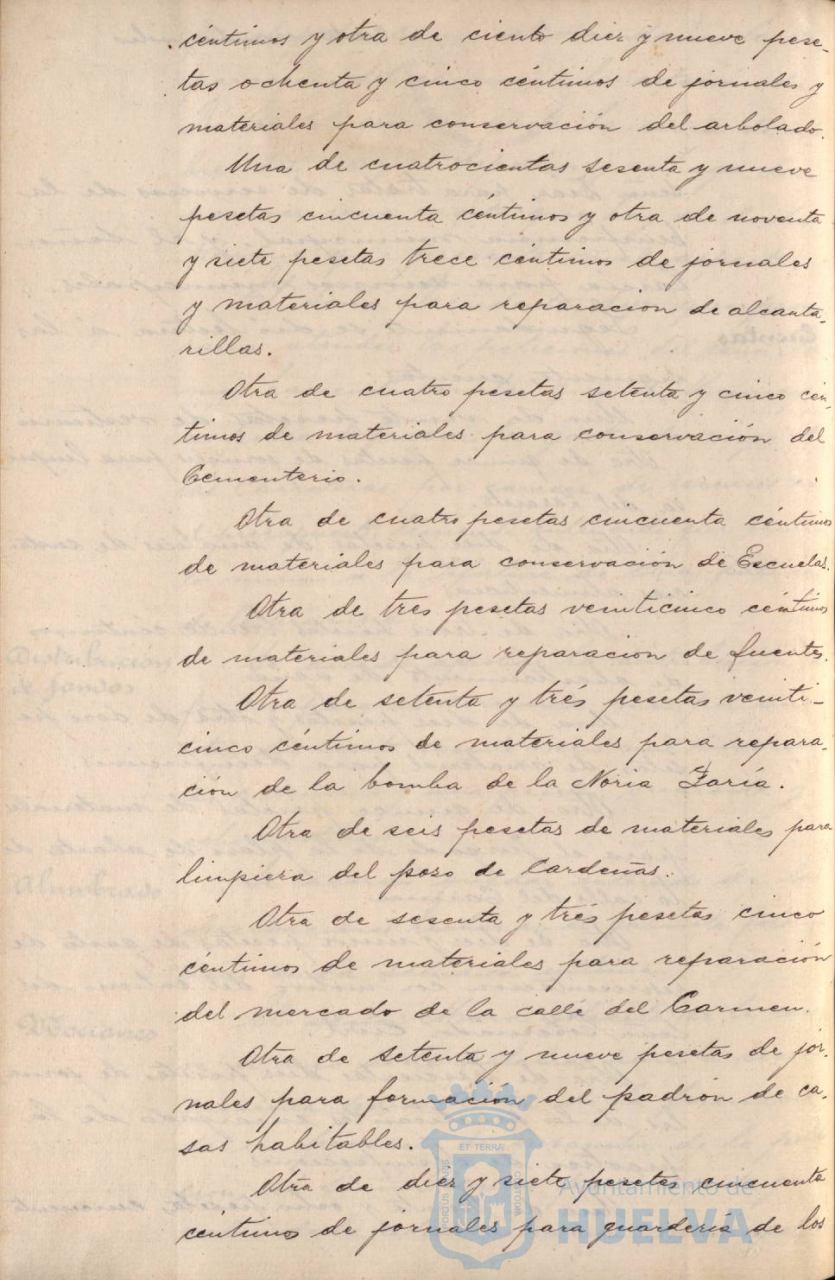 céntimos y otra de ciento diez y nueve pese-
tas ochenta y cinco céntimos de jornales y
materiales para conservación del arbolado.
Una de cuatrocientas sesenta y nueve
pesetas cincuenta céntimos y otra de noventa
y siete pesetas trece céntimos de jornales
y materiales para reparacion de alcanta-
rillas.
Otra de cuatro pesetas setenta y cinco cén-
timos de materiales para conservación del
Cementerio.
Otra de cuatro pesetas cincuenta céntimos
de materiales para conservación de Escuelas.
Otra de tres pesetas veinticinco céntimos
de materiales para reparacion de fuentes.
Otra de setenta y trés pesetas veinti-
cinco céntimos de materiales para repara-
ción de la bomba de la Noria
Otra de seis pesetas de materiales para
limpieza del pozo de Cardeñas.
Otra de sesenta y trés pesetas cinco
céntimos de materiales para reparación
del mercado de la calle del Carmen.
Otra de setenta y nueve pesetas de jor-
nales para formación del padrón de ca-
sas habitables.
Otra de diez y siete pesetas cincuenta
céntimos de jornales para guardería de los
ET TERRA
Ayuntamiento de
HUELVA